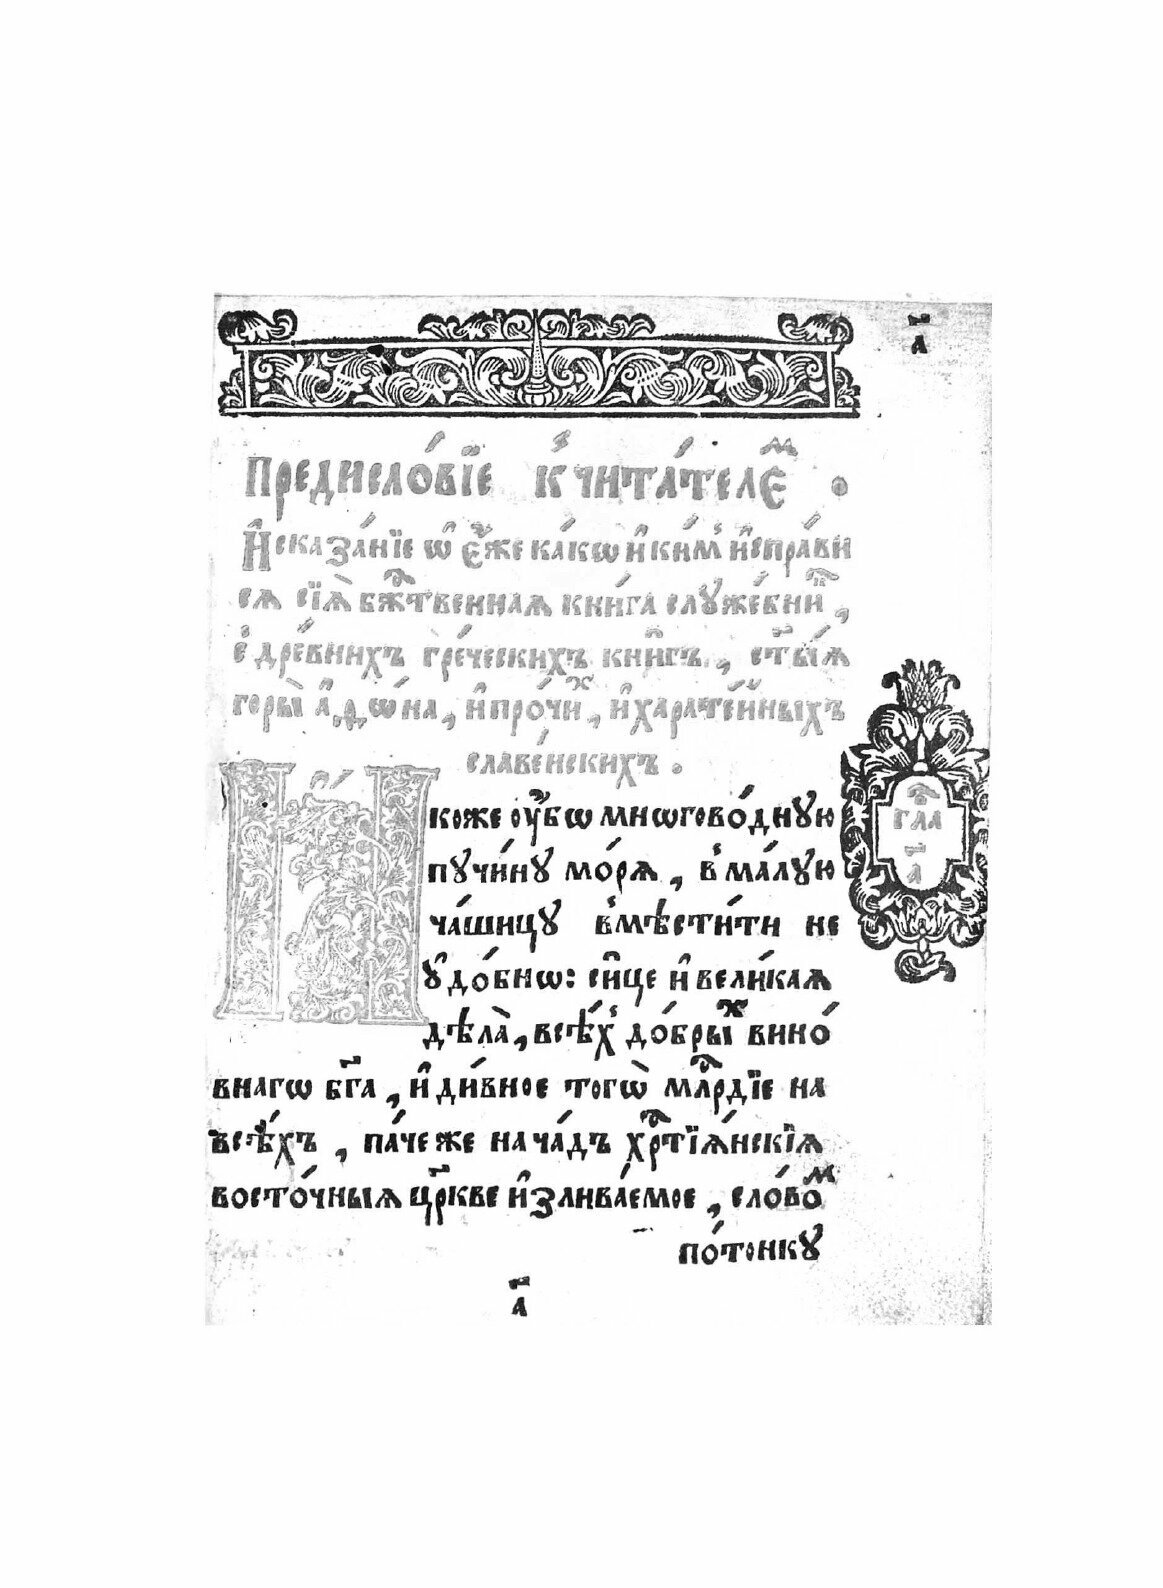 а҃
Предисло́вїе к̾ чита́телєⷨ .
И҆сказа́нїе ѡ҆ є҆́же ка́кѡ и҆ ки́м̾ и҆спра́ви
сѧ сїѧ̀ бж҃тⷭ҇веннаѧ кни́га слꙋже́бниⷦ҇ ,
с̾ дре́внихъ гре́ческихъ кни́гъ , ст҃ы́ѧ
горы̀ а҆ѳѡ́на , и҆ про́чиⷯ , и҆ харате́йныхъ
славе́нскихъ .
Ꙗ҆́коже ᲂу҆́бѡ мнѡгово́днꙋю
пꙋчи́нꙋ мо́рѧ , в̾ ма́лꙋю
ча́шицꙋ в̾мѣсти́ти не
ᲂу҆до́бнѡ : си́це и҆ вели́каѧ
дѣла̀ , всѣ́х̾ до́брыⷯ вино́
внагѡ бг҃а , и҆ ди́вное тогѡ̀ млⷭ҇рдїе на
всѣ́хъ , па́че же на ча́дъ хрⷭ҇тїѧ́нскїѧ
восто́чныѧ цр҃кве и҆зʼлива́емое , сло́воⷨ
по́тонкꙋ
глаⷡ҇
а҃
а҃